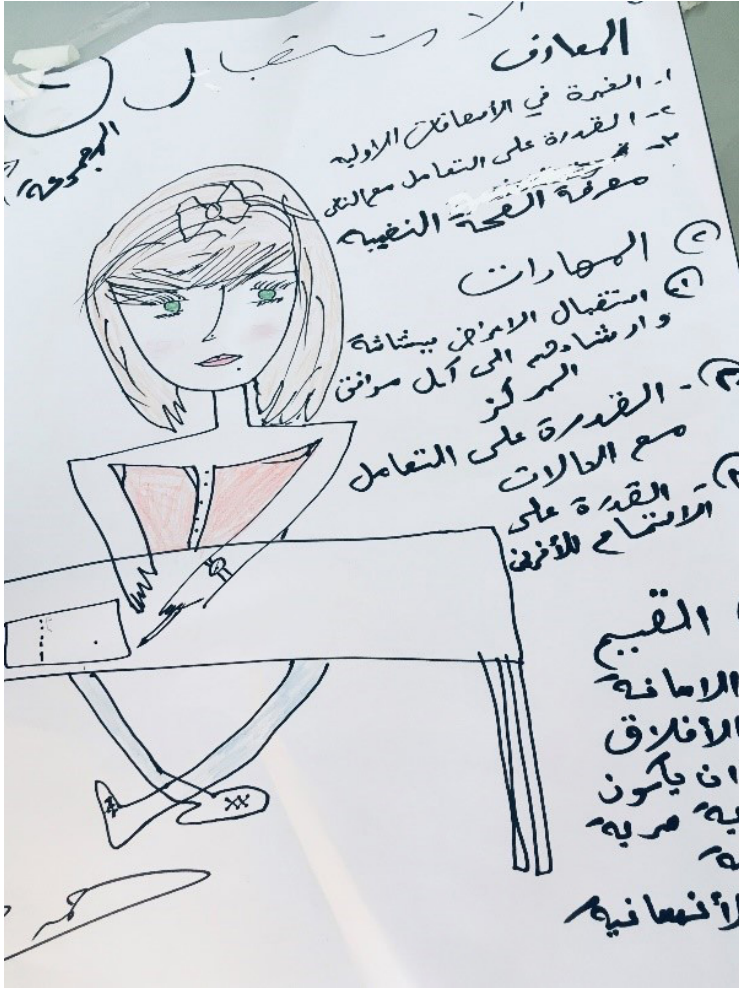 الاستقبال
المجموعة
المعارف
١- الخبرة في الأسعافات الاوليه
٢- القدرة على التعامل مع الناس
٣-
معرفة الصحة النفسيه
٢ المهارات
١- استقبال الامراض ببشاشة
وارشادهم الى كل مرافق
المركز
٢- القدرة على التعامل
مع الحالات
٣- القدرة على
الاستماع للأخرين
القييم
الامانة
الأخلاق
ان يكون
الأنسانية